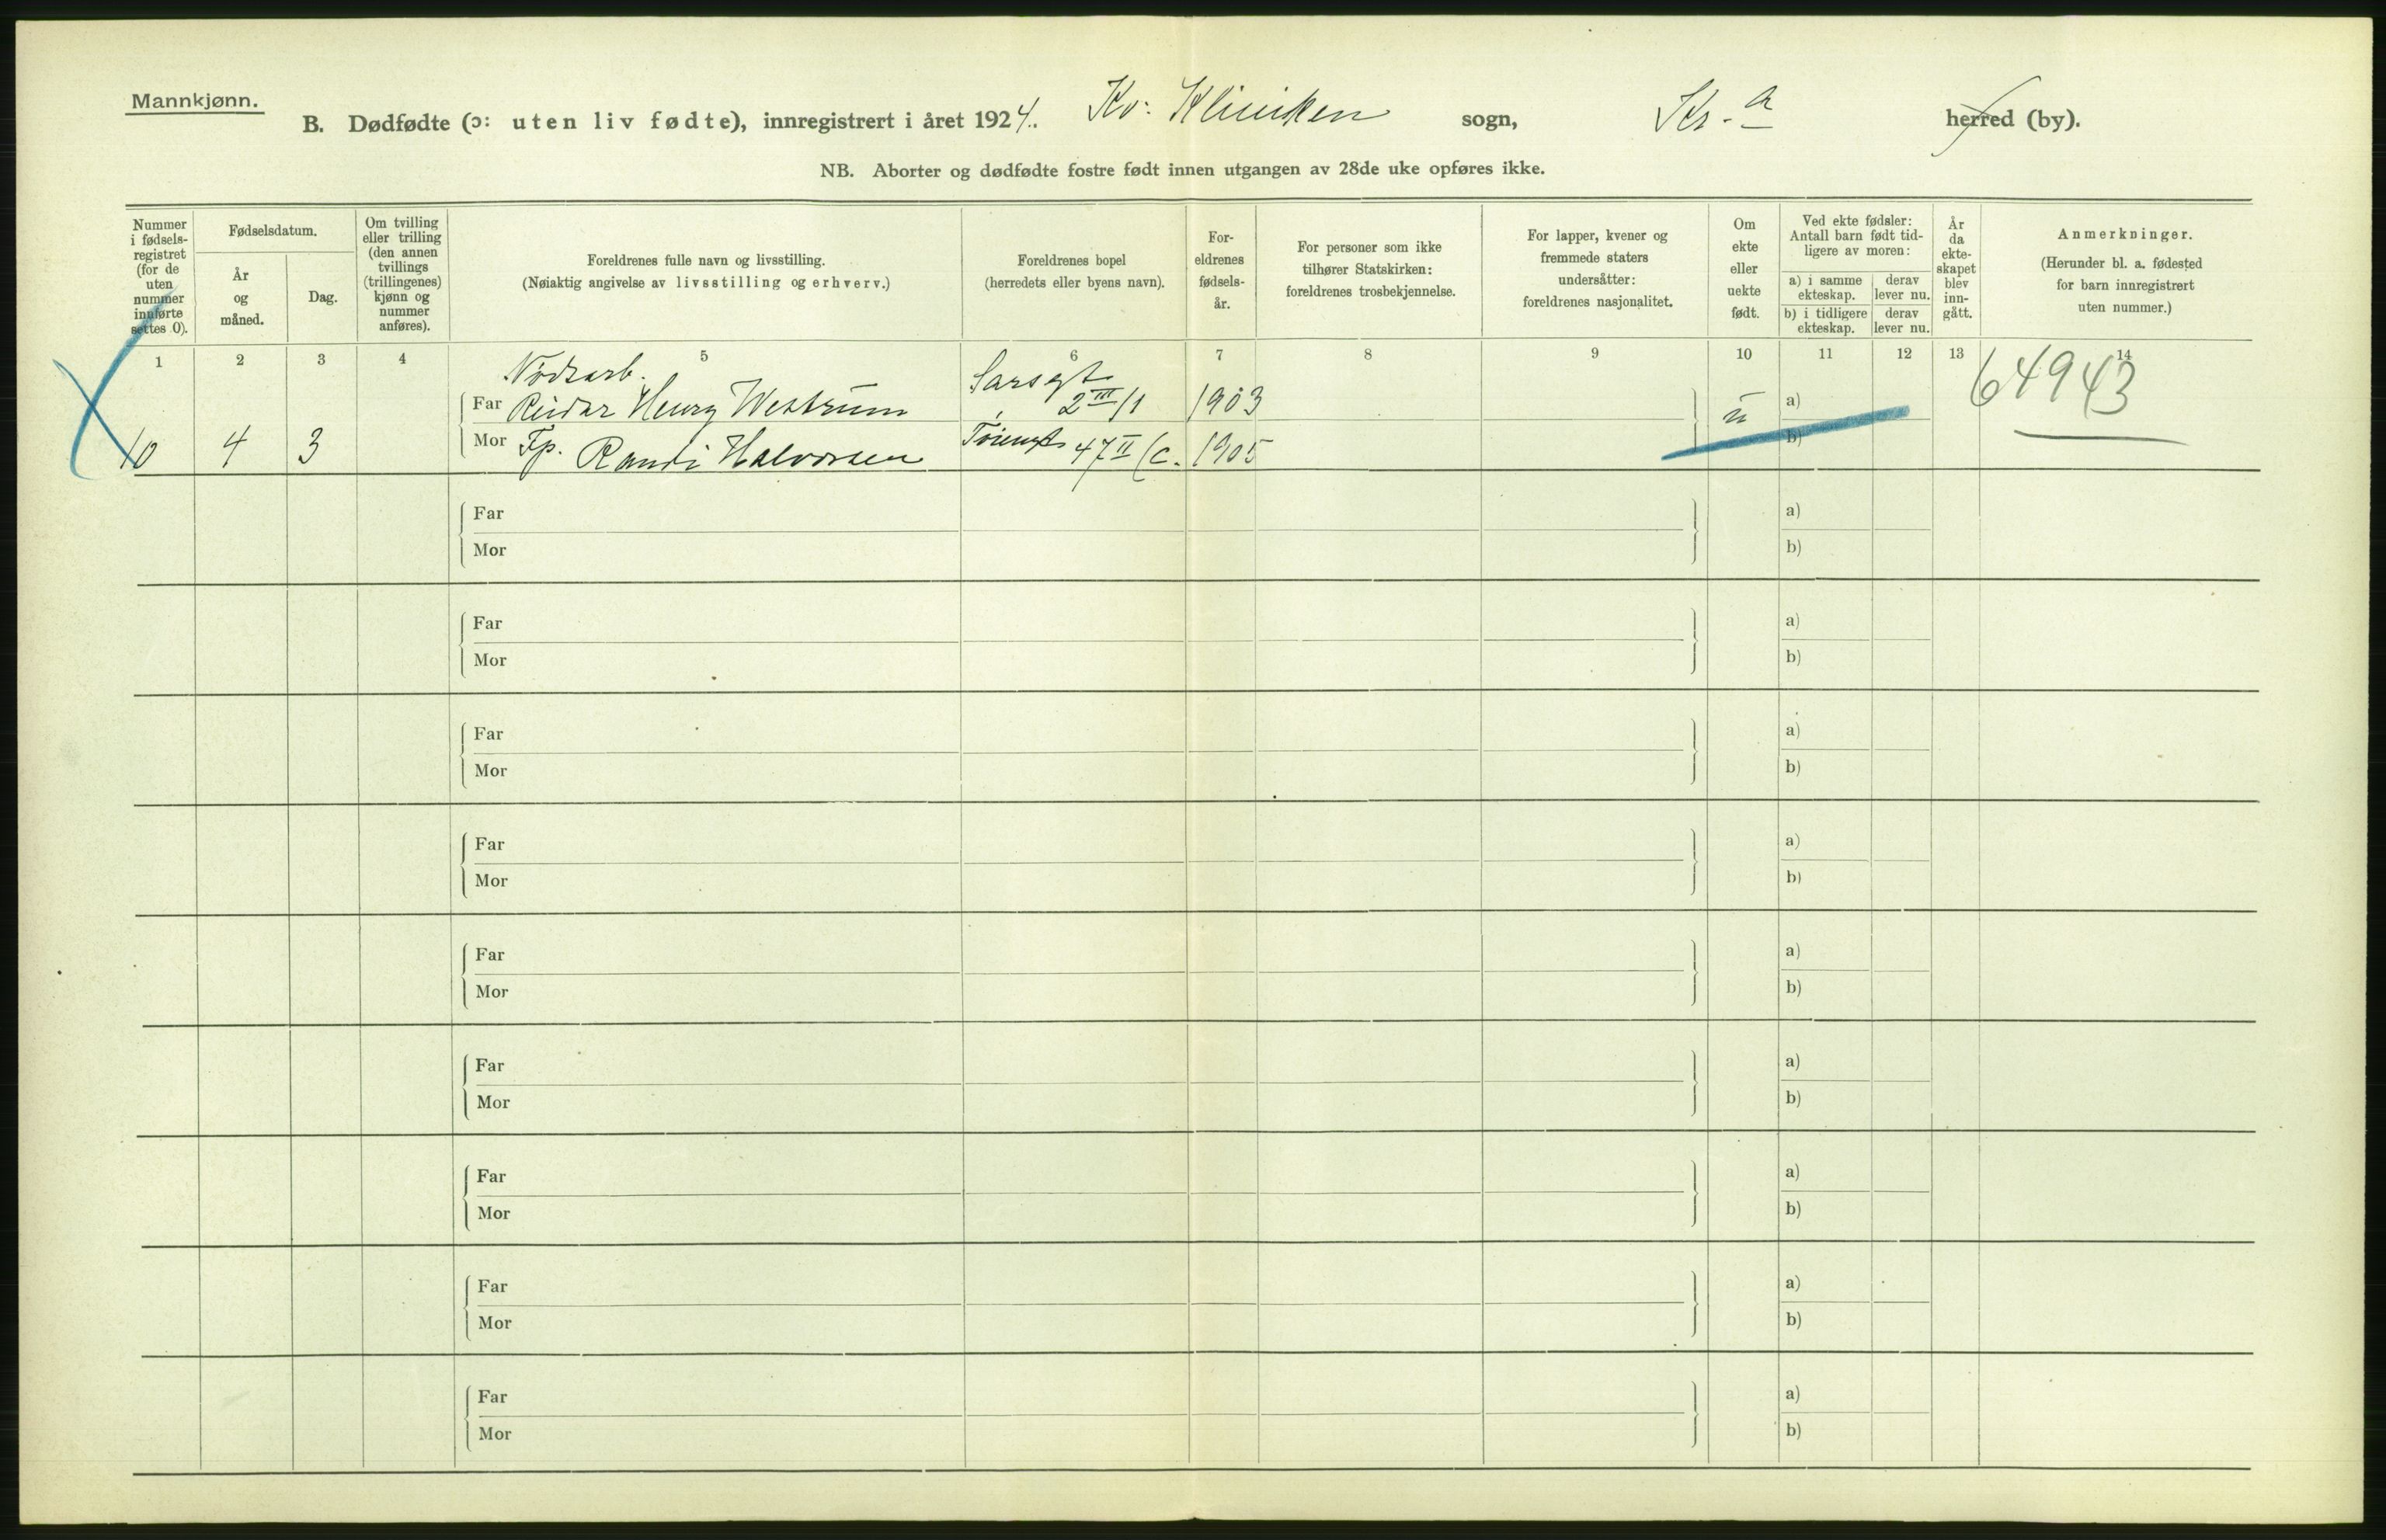 Mannkjønn.
B. Dødfødte (ɔ: uten liv fødte), innregistrert i året 1924. Kv: Kliniken sogn, Kr.a herred (by).
NB. Aborter og dødfødte fostre født innen utgangen av 28de uke opføres ikke.
Nummer i fødsels-registret (for de uten nummer innførte settes 0).
Fødselsdatum.
År og måned.
Dag.
Om tvilling eller trilling (den annen tvillings (trillingenes) kjønn og nummer anføres).
Foreldrenes fulle navn og livsstilling.
(Nøiaktig angivelse av livsstilling og erhverv.)
Foreldrenes bopel
(herredets eller byens navn).
For-eldrenes fødsels-år.
For personer som ikke tilhører Statskirken: foreldrenes trosbekjennelse.
For lapper, kvener og fremmede staters undersåtter: foreldrenes nasjonalitet.
Om ekte eller uekte født.
Ved ekte fødsler: Antall barn født tid-ligere av moren:
a) i samme ekteskap.
derav lever nu.
b) i tidligere ekteskap.
derav lever nu.
År da ekte-skapet blev inn-gått.
Anmerkninger.
(Herunder bl. a. fødested for barn innregistrert uten nummer.)
1 2 3 4 5 6 7 8 9 10 11 12 13 14
Nødsarb. Sarsgt 64943
Far Reidar Henry Westrum 2 III/1 1903 u a)
10 4 3 Mor Fp. Randi Halvorsen 47 II/c. 1905 b)
Far a)
Mor b)
Far a)
Mor b)
Far a)
Mor b)
Far a)
Mor b)
Far a)
Mor b)
Far a)
Mor b)
Far a)
Mor b)
Far a)
Mor b)
Far a)
Mor b)